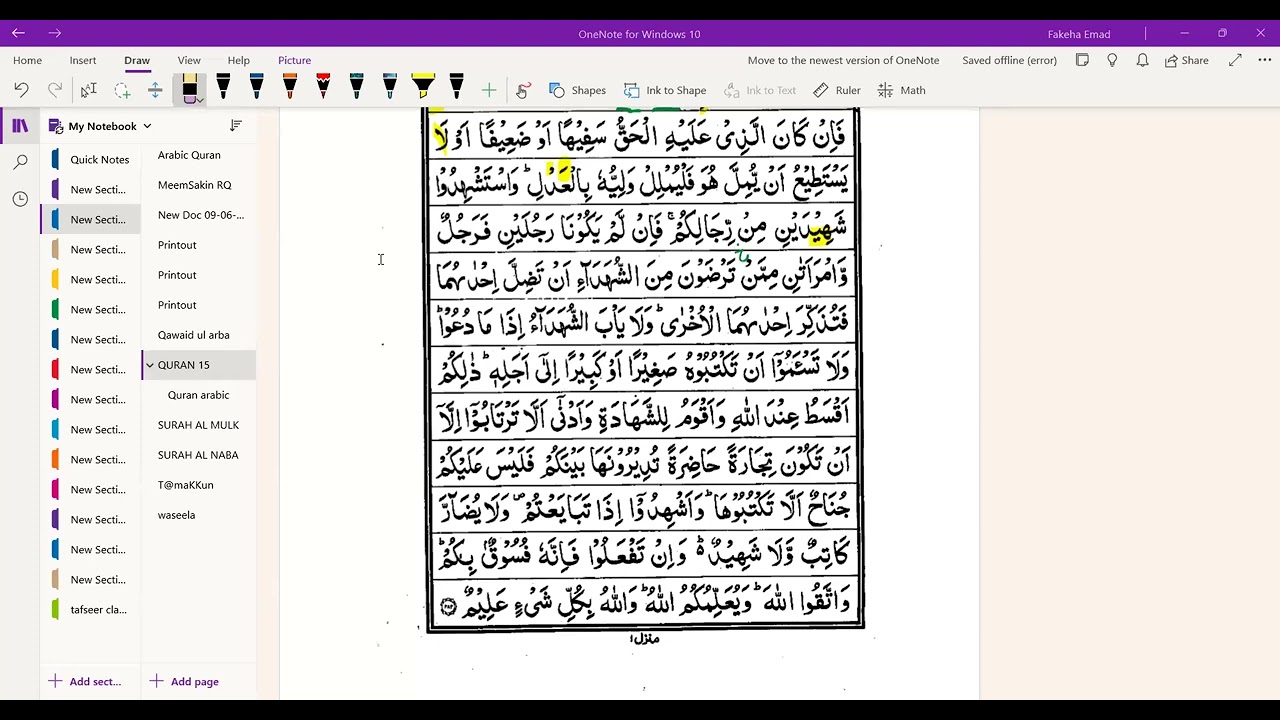 OneNote for Windows 10
Fakeha Emad
Home Insert Draw View Help Picture
Move to the newest version of OneNote
Saved offline (error)
Share
Shapes
Ink to Shape
Ink to Text
Ruler
Math
My Notebook
Quick Notes
New Secti...
New Secti...
New Secti...
New Secti...
New Secti...
New Secti...
New Secti...
New Secti...
New Secti...
New Secti...
New Secti...
New Secti...
New Secti...
New Secti...
tafseer cla...
Add sect...
Arabic Quran
MeemSakin RQ
New Doc 09-06-...
Printout
Printout
Printout
Qawaid ul arba
QURAN 15
Quran arabic
SURAH AL MULK
SURAH AL NABA
T@maKKun
waseela
Add page
فَاِنْ كَانَ الَّذِىْ عَلَيْهِ الْحَقُّ سَفِيْهًا اَوْ ضَعِيْفًا اَوْ لَا
يَسْتَطِيْعُ اَنْ يُّمِلَّ هُوَ فَلْيُمْلِلْ وَلِيُّهٗ بِالْعَدْلِ ؕ وَاسْتَشْهِدُوْا
شَهِيْدَيْنِ مِنْ رِّجَالِكُمْ ۚ فَاِنْ لَّمْ يَكُوْنَا رَجُلَيْنِ فَرَجُلٌ
وَّامْرَاَتٰنِ مِمَّنْ تَرْضَوْنَ مِنَ الشُّهَدَآءِ اَنْ تَضِلَّ اِحْدٰىهُمَا
فَتُذَكِّرَ اِحْدٰىهُمَا الْاُخْرٰى ؕ وَلَا يَاْبَ الشُّهَدَآءُ اِذَا مَا دُعُوْا ؕ
وَلَا تَسْـَٔمُوْۤا اَنْ تَكْتُبُوْهُ صَغِيْرًا اَوْ كَبِيْرًا اِلٰٓى اَجَلِهٖ ؕ ذٰلِكُمْ
اَقْسَطُ عِنْدَ اللّٰهِ وَاَقْوَمُ لِلشَّهَادَةِ وَاَدْنٰٓى اَلَّا تَرْتَابُوْۤا اِلَّاۤ
اَنْ تَكُوْنَ تِجَارَةً حَاضِرَةً تُدِيْرُوْنَهَا بَيْنَكُمْ فَلَيْسَ عَلَيْكُمْ
جُنَاحٌ اَلَّا تَكْتُبُوْهَا ؕ وَاَشْهِدُوْۤا اِذَا تَبَايَعْتُمْ ۪ وَلَا يُضَآرَّ
كَاتِبٌ وَّلَا شَهِيْدٌ ؕ۬ وَاِنْ تَفْعَلُوْا فَاِنَّهٗ فُسُوْقٌۢ بِكُمْ ؕ
وَاتَّقُوا اللّٰهَ ؕ وَيُعَلِّمُكُمُ اللّٰهُ ؕ وَاللّٰهُ بِكُلِّ شَىْءٍ عَلِيْمٌ ﴿۲۸۲﴾
منزل۱